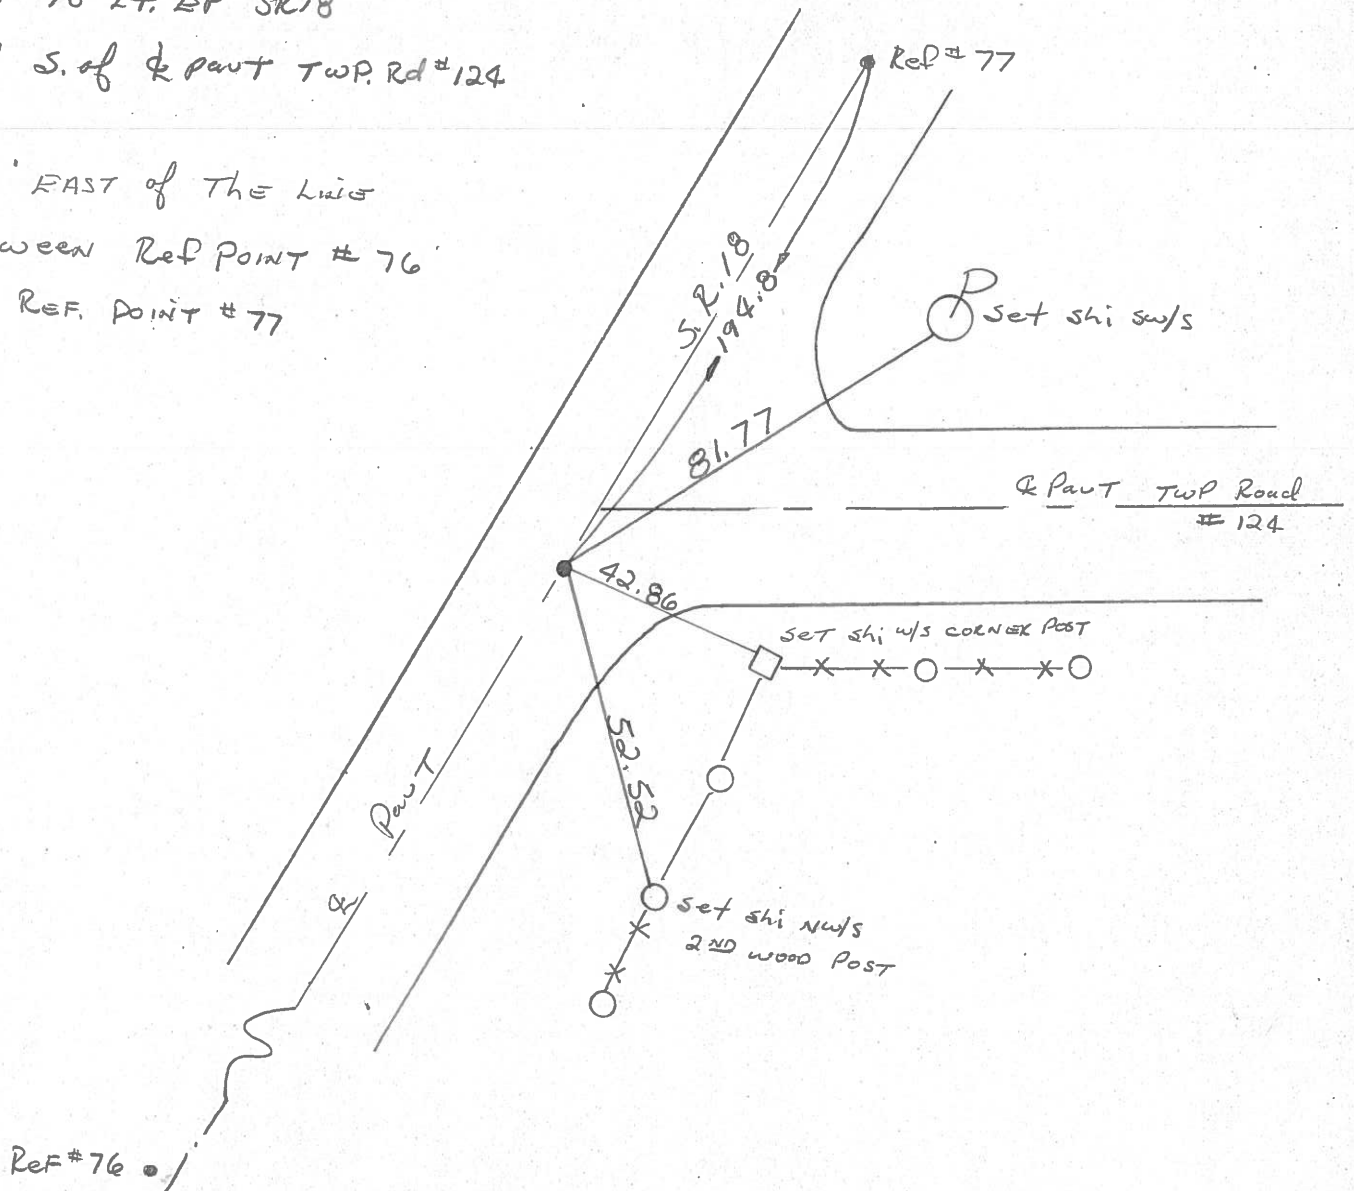 To LT. EP SR18
S. of ℄ PavT TWP. Rd #124
' EAST of ThE LinE
ween Ref POINT # 76
REF. POINT # 77
Ref # 77
S.R. 18
194.8
Set shi sw/s
81.77
℄ PavT TWP Road
# 124
42.86
SET shi w/s CORNER POST
52.52
PavT
℄
Set shi NW/s
2ND WOOD POST
REF #76